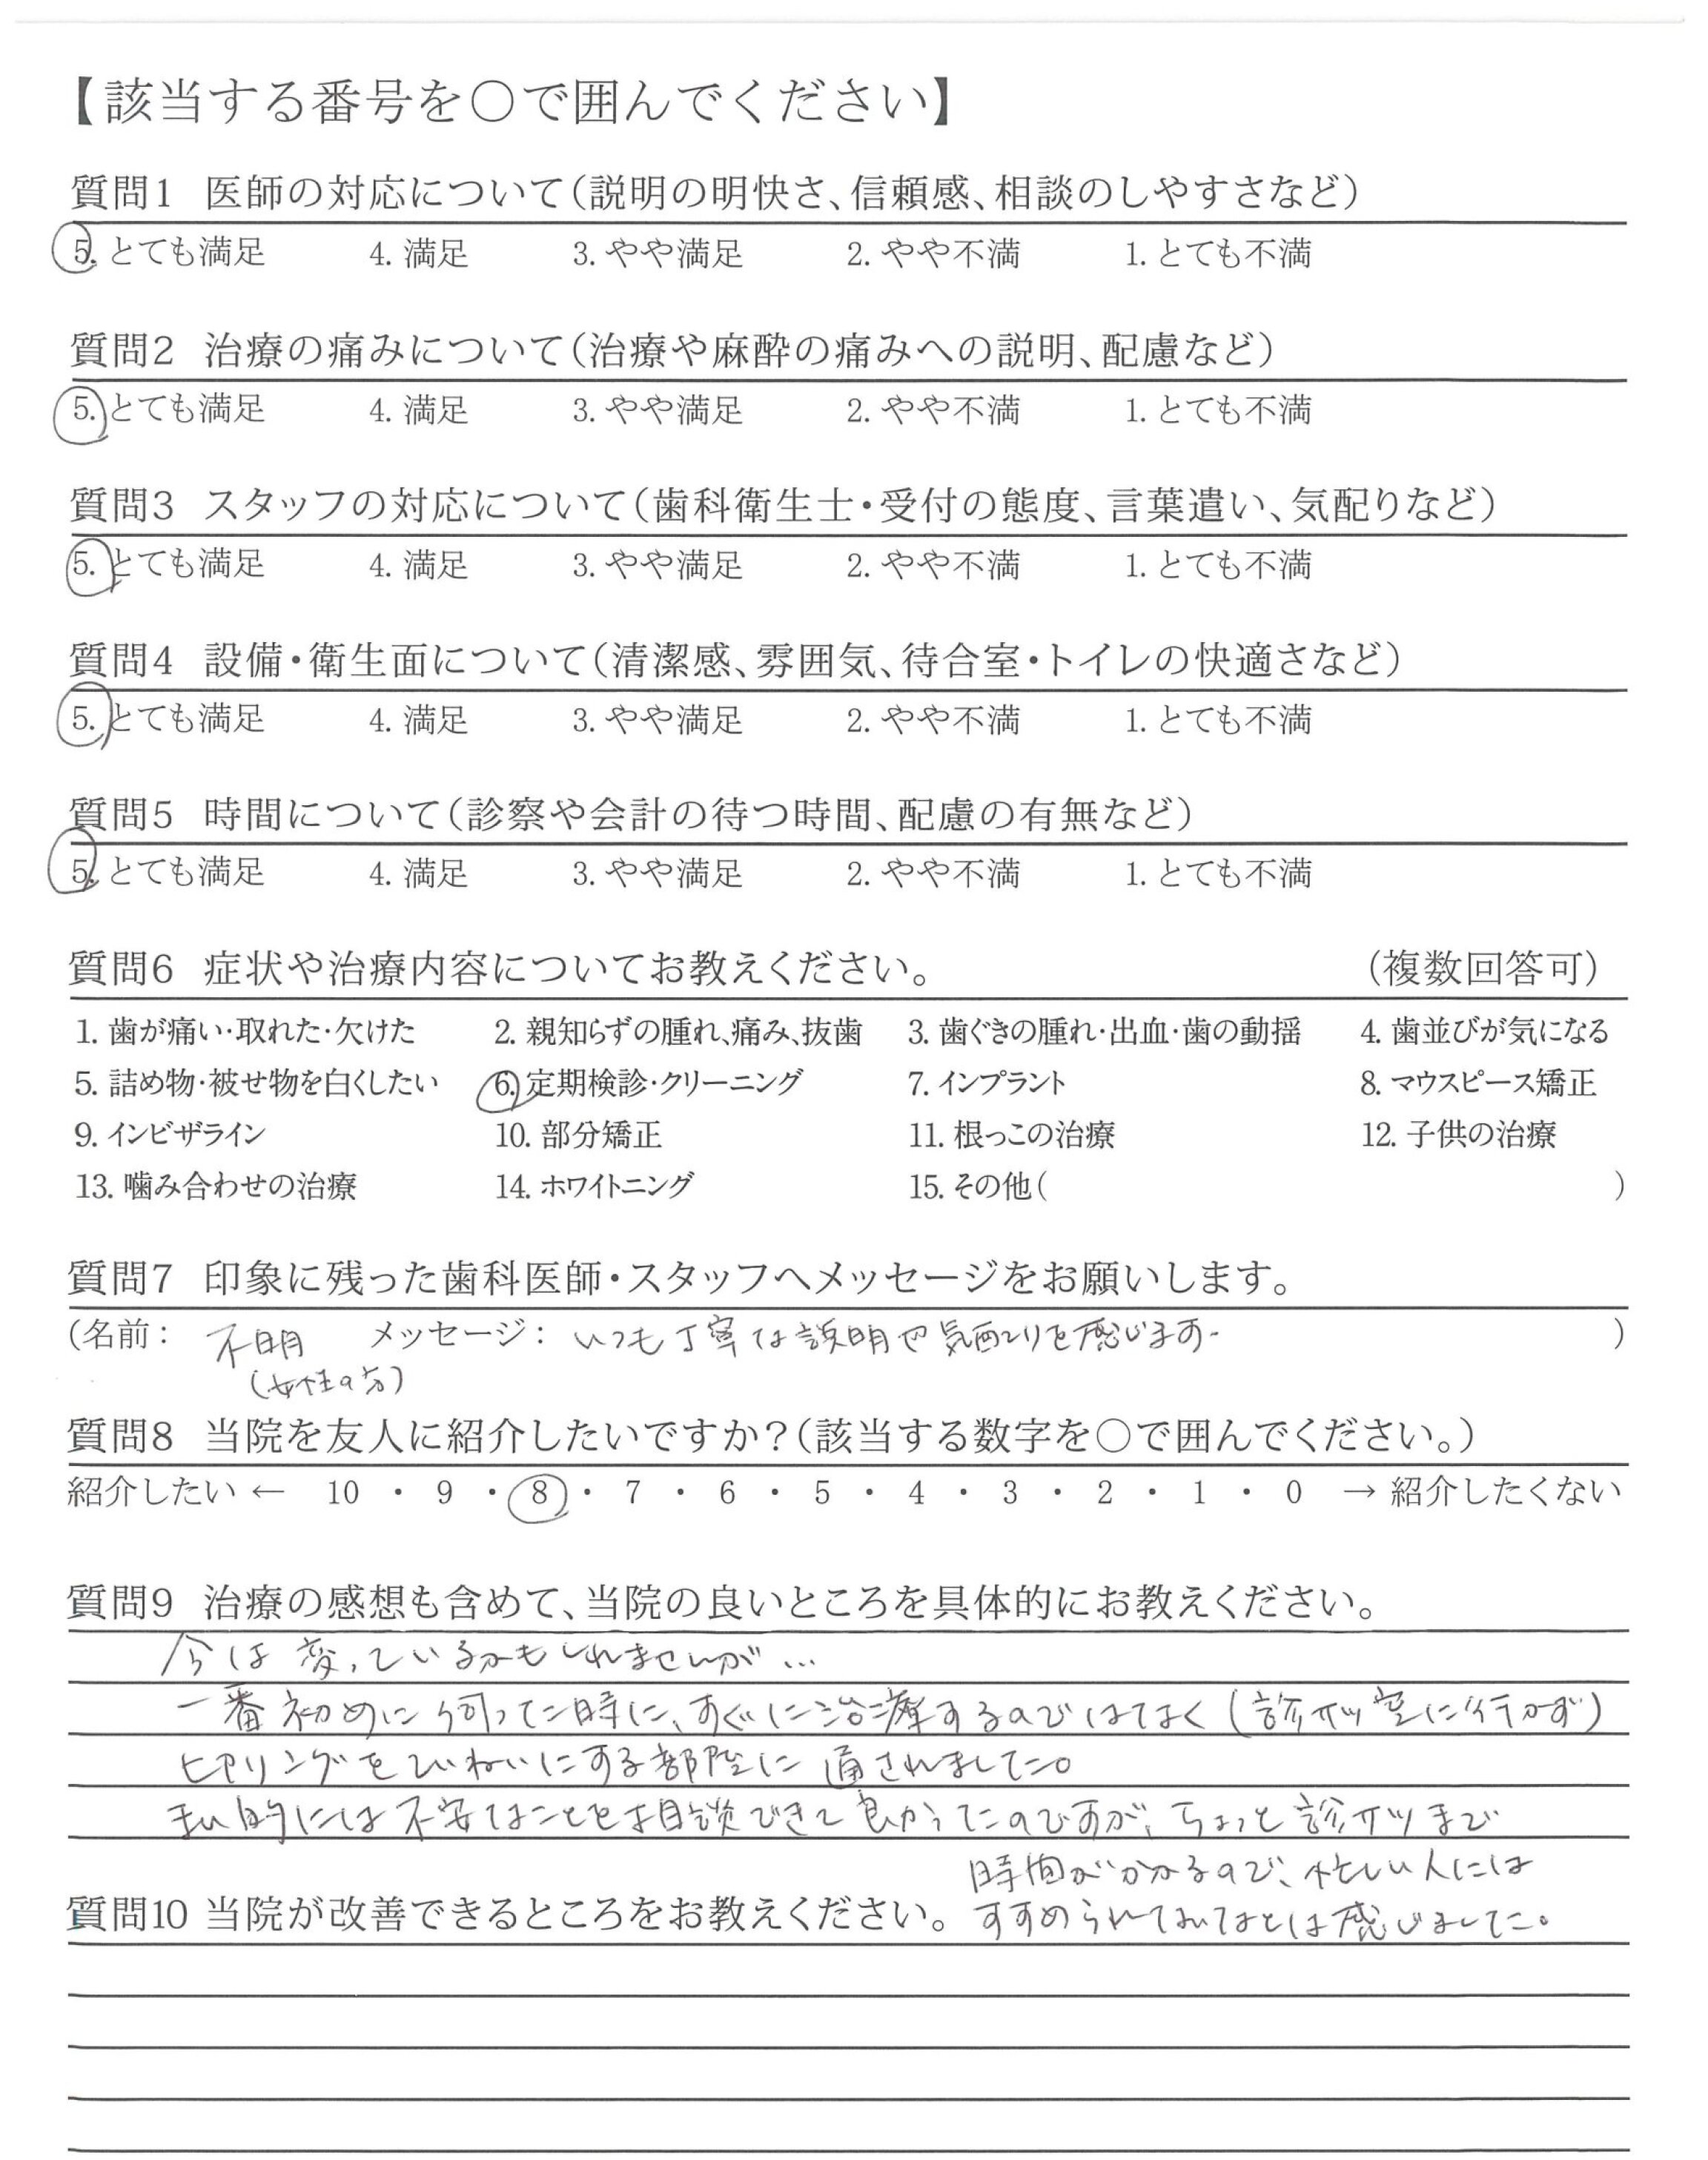 【該当する番号を○で囲んでください】
質問1 医師の対応について(説明の明快さ、信頼感、相談のしやすさなど)
5. とても満足 4. 満足 3. やや満足 2. やや不満 1. とても不満
質問2 治療の痛みについて(治療や麻酔の痛みへの説明、配慮など)
5. とても満足 4. 満足 3. やや満足 2. やや不満 1. とても不満
質問3 スタッフの対応について(歯科衛生士・受付の態度、言葉遣い、気配りなど)
5. とても満足 4. 満足 3. やや満足 2. やや不満 1. とても不満
質問4 設備・衛生面について(清潔感、雰囲気、待合室・トイレの快適さなど)
5. とても満足 4. 満足 3. やや満足 2. やや不満 1. とても不満
質問5 時間について(診察や会計の待つ時間、配慮の有無など)
5. とても満足 4. 満足 3. やや満足 2. やや不満 1. とても不満
質問6 症状や治療内容についてお教えください。 (複数回答可)
1. 歯が痛い・取れた・欠けた 2. 親知らずの腫れ、痛み、抜歯 3. 歯ぐきの腫れ・出血・歯の動揺 4. 歯並びが気になる
5. 詰め物・被せ物を白くしたい 6. 定期検診・クリーニング 7. インプラント 8. マウスピース矯正
9. インビザライン 10. 部分矯正 11. 根っこの治療 12. 子供の治療
13. 噛み合わせの治療 14. ホワイトニング 15. その他( )
質問7 印象に残った歯科医師・スタッフへメッセージをお願いします。
(名前: 不明 メッセージ: いつも丁寧な説明や気配りを感じます。 )
(女性の方)
質問8 当院を友人に紹介したいですか?(該当する数字を○で囲んでください。)
紹介したい ← 10 ・ 9 ・ 8 ・ 7 ・ 6 ・ 5 ・ 4 ・ 3 ・ 2 ・ 1 ・ 0 → 紹介したくない
質問9 治療の感想も含めて、当院の良いところを具体的にお教えください。
今は変っているかもしれませんが…
一番初めに伺った時に、すぐに治療するのではなく(診サツ室に行かず)
ヒアリングをていねいにする部屋に通されました。
私的には不安なことを相談できて良かったのですが、ちょっと診サツまで
時間がかかるので、忙しい人には
質問10 当院が改善できるところをお教えください。 すすめられないなとは感じました。